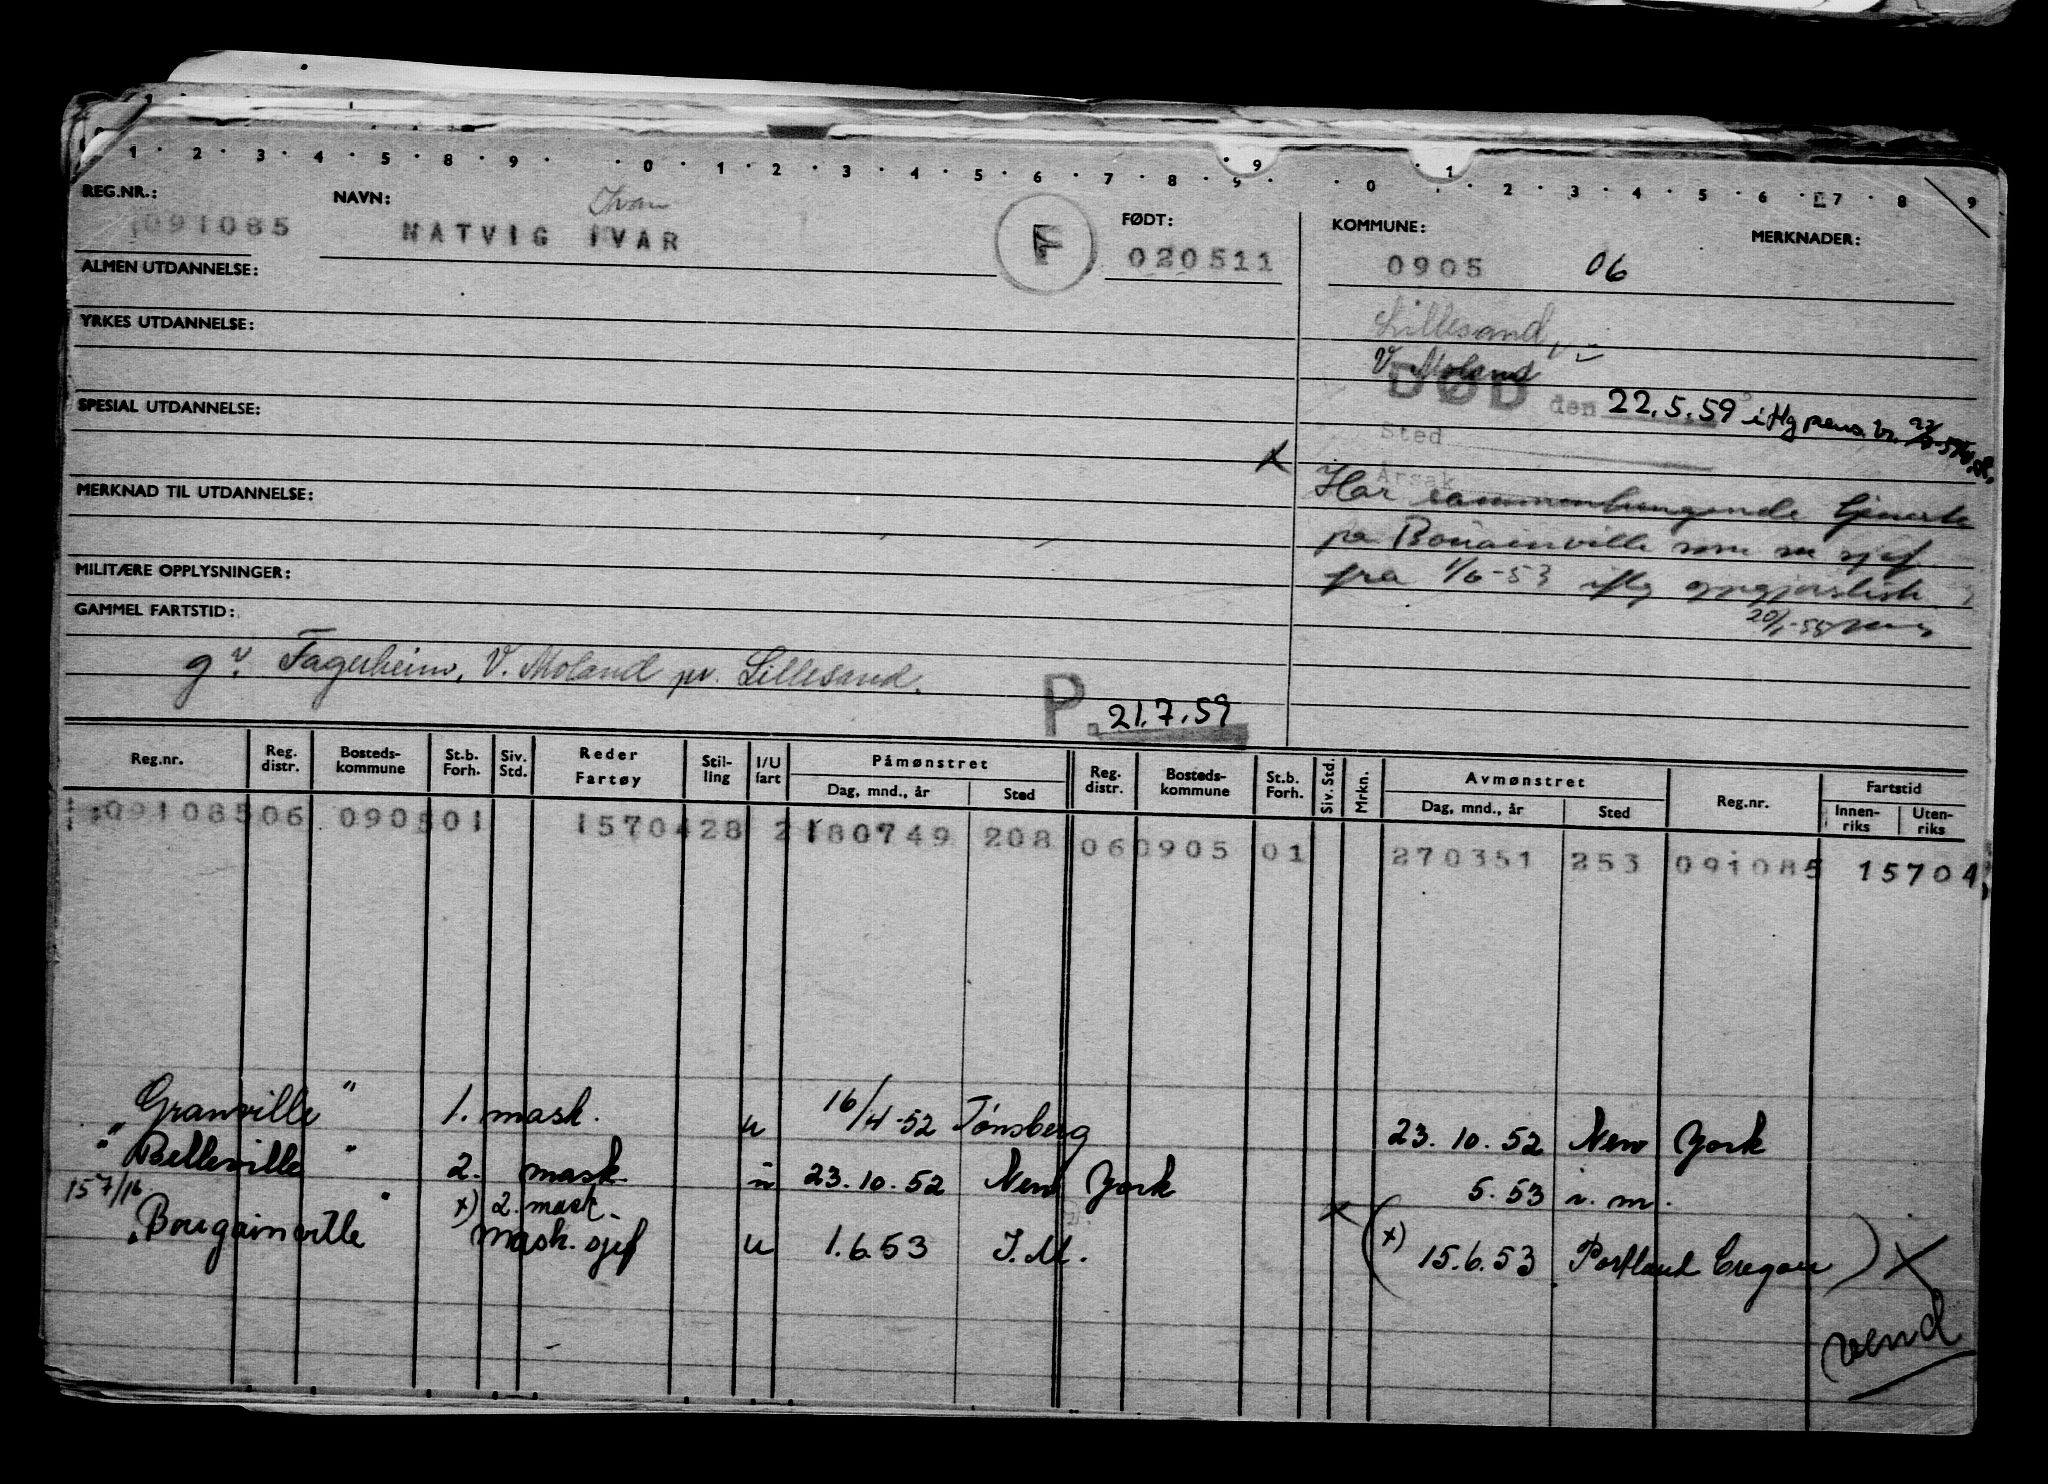 1 2 3 4 5 8 9 0 1 2 3 4 5 6 7 8 9 9 0 1 2 3 4 5 6 7 8 9
REG.NR.: NAVN: FØDT: KOMMUNE: MERKNADER:
Ivar
091085 NATVIG IVAR F 020511 0905 06
ALMEN UTDANNELSE:
Lillesand
YRKES UTDANNELSE:
V. Moland
DØD den 22.5.59 iflg pens.
SPESIAL UTDANNELSE:
Sted
x
Årsak
MERKNAD TIL UTDANNELSE:
Har sammenhengende tjeneste
på Bougainville som m sjef
MILITÆRE OPPLYSNINGER:
fra 1/6-53 iflg
GAMMEL FARTSTID:
g. Fagerheim, V. Moland pr. Lillesand.
P. 21.7.59
Reg.nr. Reg. distr. Bosteds-kommune St.b. Forh. Siv. Std. Reder Fartøy Stil-ling I/U fart Påmønstret Reg. distr. Bosteds-kommune St.b. Forh. Siv. Std. Mrkn. Avmønstret Reg.nr. Fartstid
Dag, mnd., år Sted Dag, mnd., år Sted Innen-riks Uten-riks
09108506 090501 1570428 2180749 208 060905 01 270351 253 091085 15704
Granville " 1. mask. u 16/4-52 Tønsberg 23.10.52 New York
" Belleville " 2. mask. u 23.10.52 New York 5.53 i.m.
157/16 x) 2. mask.
Bougainville " mask. sjef u 1.6.53 I.M. x (x) 15.6.53 Portland Oregon) X
vend